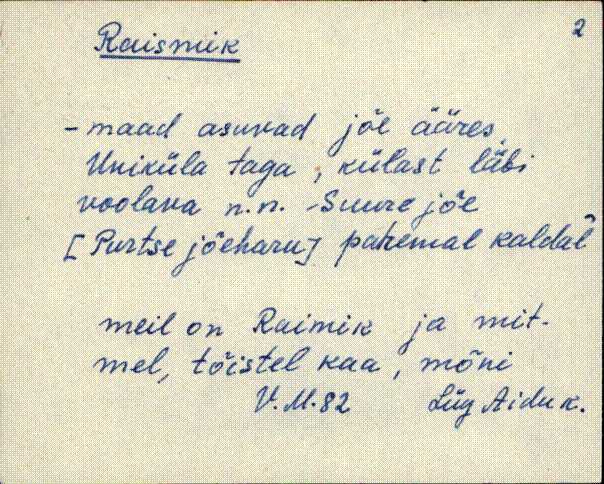 2
Raismik
- maad asuvad jõe ääres,
Uniküla taga, külast läbi
voolava n.n. Suure jõe
[Purtse jõeharu] paremal kaldal
meil on Raimik ja mit-
mel, tõistel kaa, mõni
V.M.82 Lüg Aidu k.